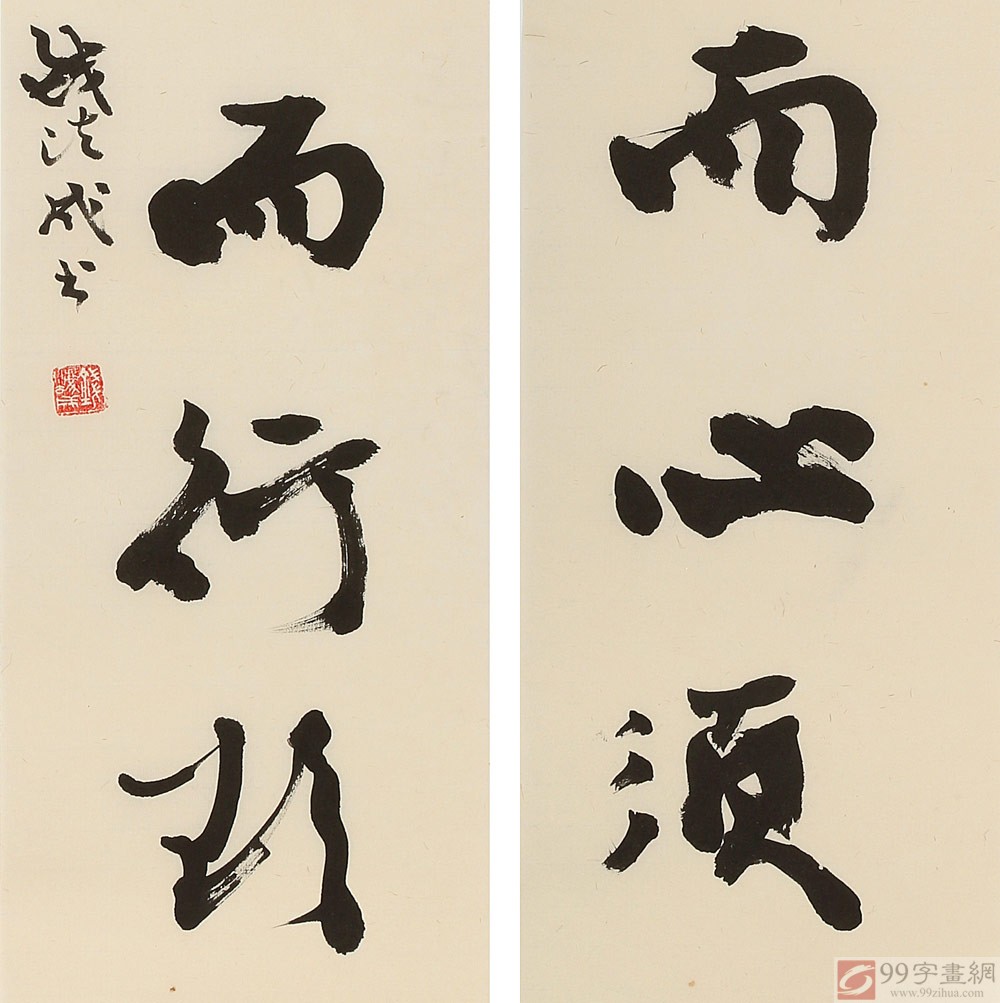 而心须
而行
钱法成书
99字畫網
www.99zihua.com